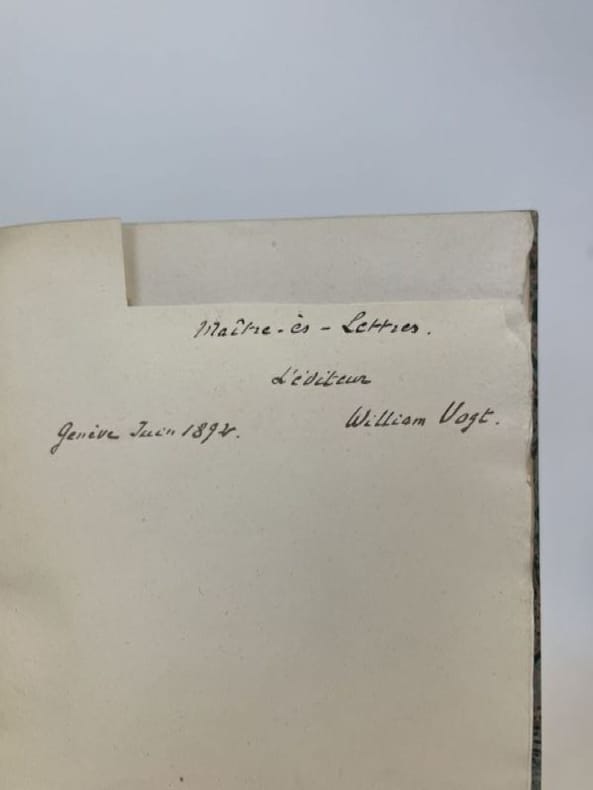 Maître-ès-Lettres.
L'éditeur
William Vogt.
Genève Juin 1892.